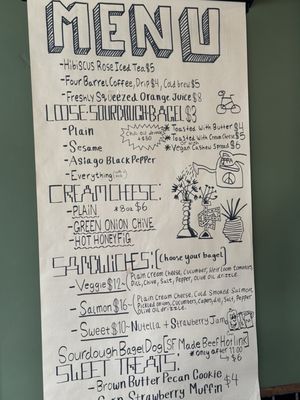 MENU
-Hibiscus Rose Iced Tea $5
-Four Barrel Coffee, Drip $4, Cold brew $5
-Freshly Squeezed Orange Juice $8
LOOSE SOURDOUGH BAGEL $3
-Plain
-Sesame
-Asiago Black Pepper
-Everything
* Toasted With Butter $4
* Toasted With Cream Cheese $5
or Vegan Cashew Spread $6
CREAM CHEESE:
-PLAIN *8oz $6
-GREEN ONION CHIVE
-HOT HONEY FIG
SANDWICHES: [Choose your bagel]
-Veggie $12~ Plain Cream Cheese, Cucumber, Heirloom Tomatoes,
Dill, Chive, Salt, Pepper, Olive Oil drizzle.
-Salmon $16~ Plain Cream Cheese, Cold Smoked Salmon,
Pickled Onion, Cucumber, Capers, Dill, Salt, Pepper
Olive Oil drizzle.
-Sweet $10~ Nutella + Strawberry Jam
Sourdough Bagel Dog [SF Made Beef Hot link]
*Only after 11:00
→ $6
SWEET TREATS:
-Brown Butter Pecan Cookie
Corn Strawberry Muffin $4